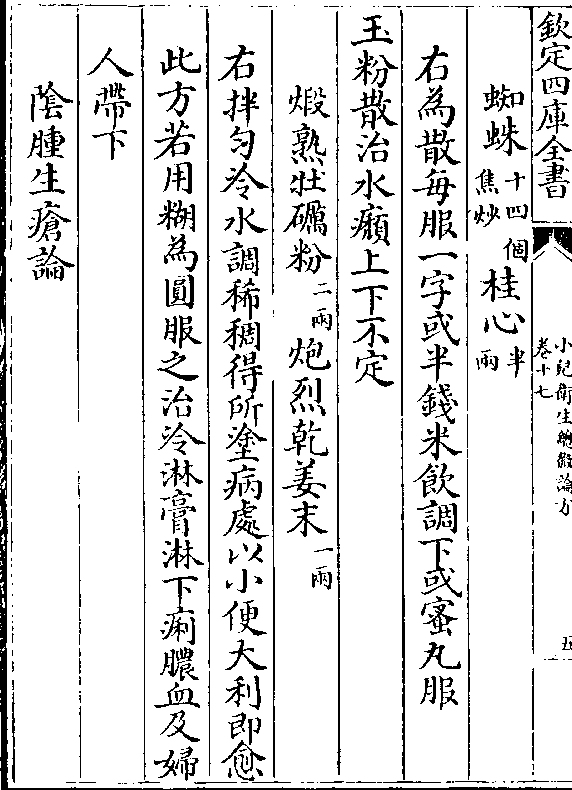 欽定四庫全書
小兒衛生總微論方
卷十七
五
蜘蛛十四個焦炒桂心半兩
右為散每服一字或半錢米飲調下或蜜丸服
玉粉散治水㿗上下不定
煅熟牡礪粉二兩炮烈乾姜末一兩
右拌匀冷水調稀稠得所塗病處以小便大利即愈
此方若用糊為圓服之治冷淋膏淋下痢膿血及婦
人帶下
陰腫生瘡論